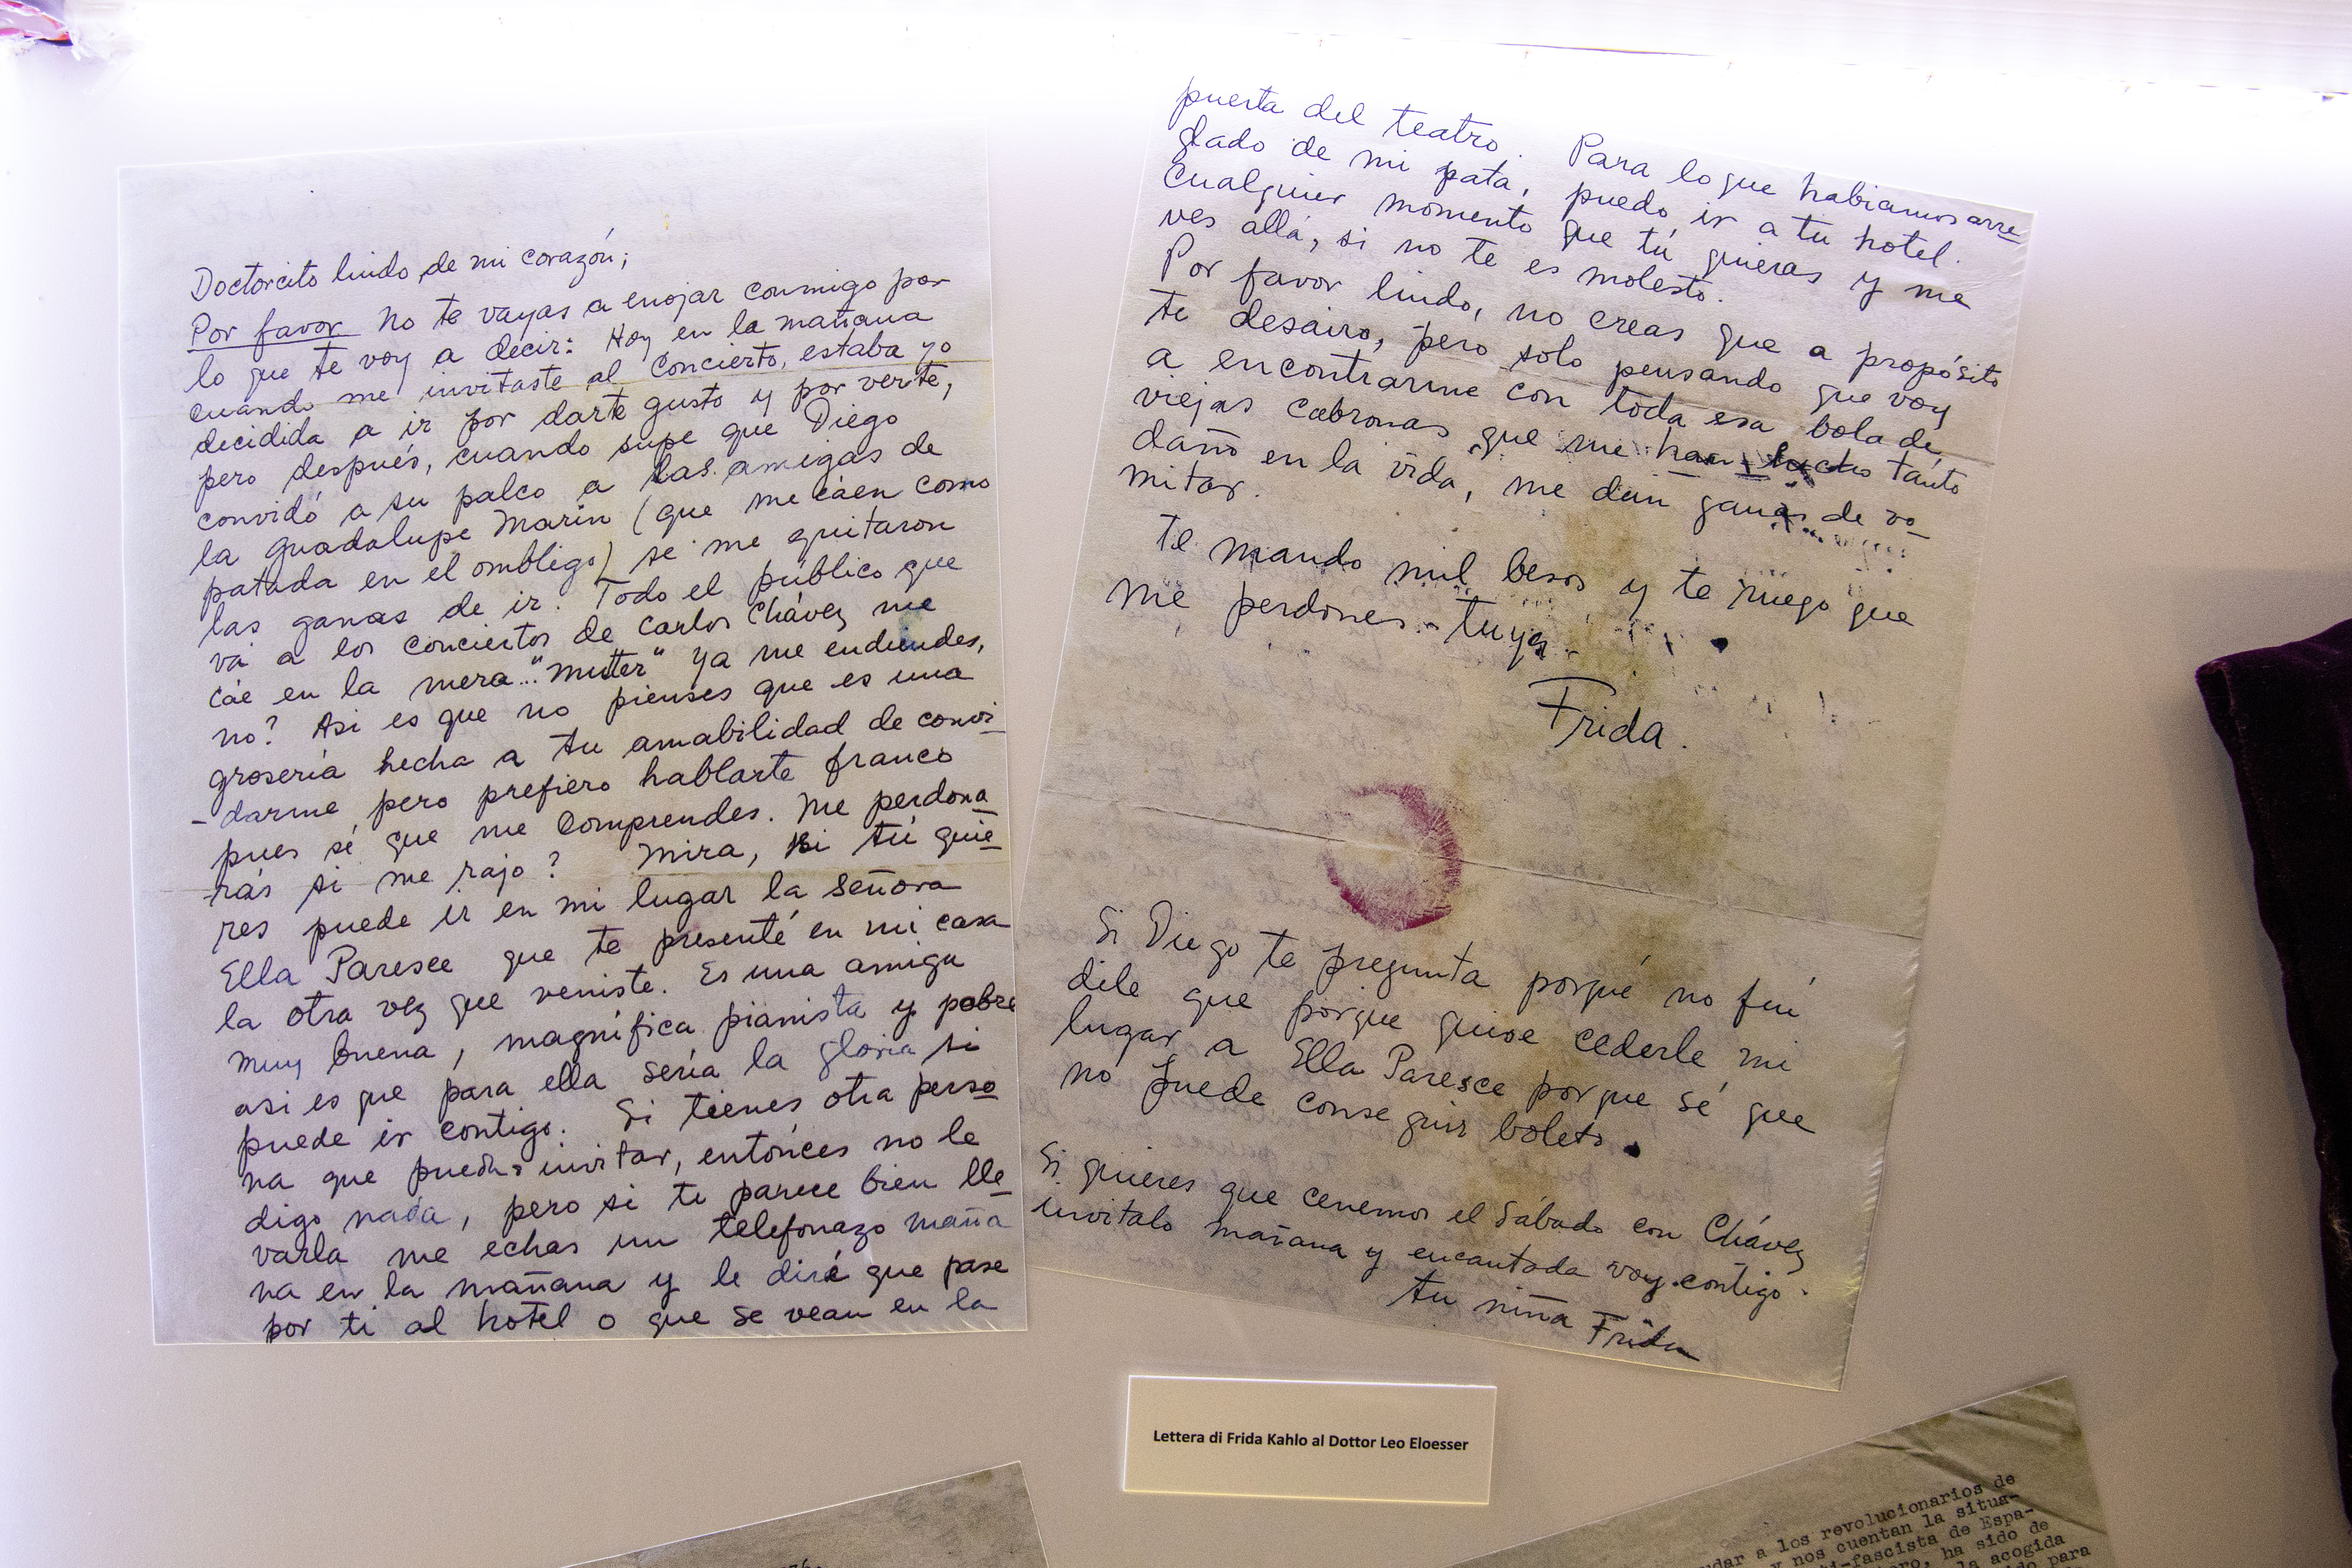 Doctorcito lindo de mi corazón;
Por favor no te vayas a enojar conmigo por
lo que te voy a decir: Hoy en la mañana
cuando me invitaste al Concierto, estaba yo
decidida a ir por darte gusto y por verte,
pero después, cuando supe que Diego
convidó a su palco a las amigas de
la Guadalupe Marin (que me cáen como
patada en el ombligo) se me quitaron
las ganas de ir. Todo el público que
vá a los conciertos de Carlos Chávez me
cáe en la mera..."mutter" ya me endiendes,
no? Asi es que no pienses que es una
grosería hecha a tu amabilidad de convi-
-darme, pero prefiero hablarte franco
pues sé que me comprendes. Me perdona
-rás si me rajo? Mira, si tú quie-
res puede ir en mi lugar la Señora
Ella Paresce que te presenté en mi casa
la otra vez que veniste. Es una amiga
muy buena, magnífica pianista y pobre
asi es que para ella sería la gloria si
puede ir contigo. Si tienes otra perso-
na que puedas invitar, entónces no le
digo nada, pero si te parece bien lle-
varla me echas un telefonazo maña
na en la mañana y le diré que pase
por ti al hotel o que se vean en la
puerta del teatro. Para lo que habiamos arre-
glado de mi pata, puedo ir a tu hotel.
Cualquier momento que tú quieras y me
ves allá, si no te es molesto.
Por favor lindo, no creas que a propósito
te desairo, pero solo pensando que voy
a encontrarme con toda esa bola de
viejas cabronas que me han hecho tánto
daño en la vida, me dan ganas de vo-
mitar.
Te mando mil besos y te ruego que
me perdones.- tuya.
Frida.
Si Diego te pregunta porqué no fui
dile que porque quise cederle mi
lugar a Ella Paresce porque sé que
no puede conseguir boleto.
Si quieres que cenemos el Sábado con Chávez
invitalo mañana y encantada voy contigo.
tu niña Frida
Lettera di Frida Kahlo al Dottor Leo Eloesser
a los revolucionarios de
y nos cuentan la situa-
ti-fascista de Espa-
ha sido de
la acogida
para